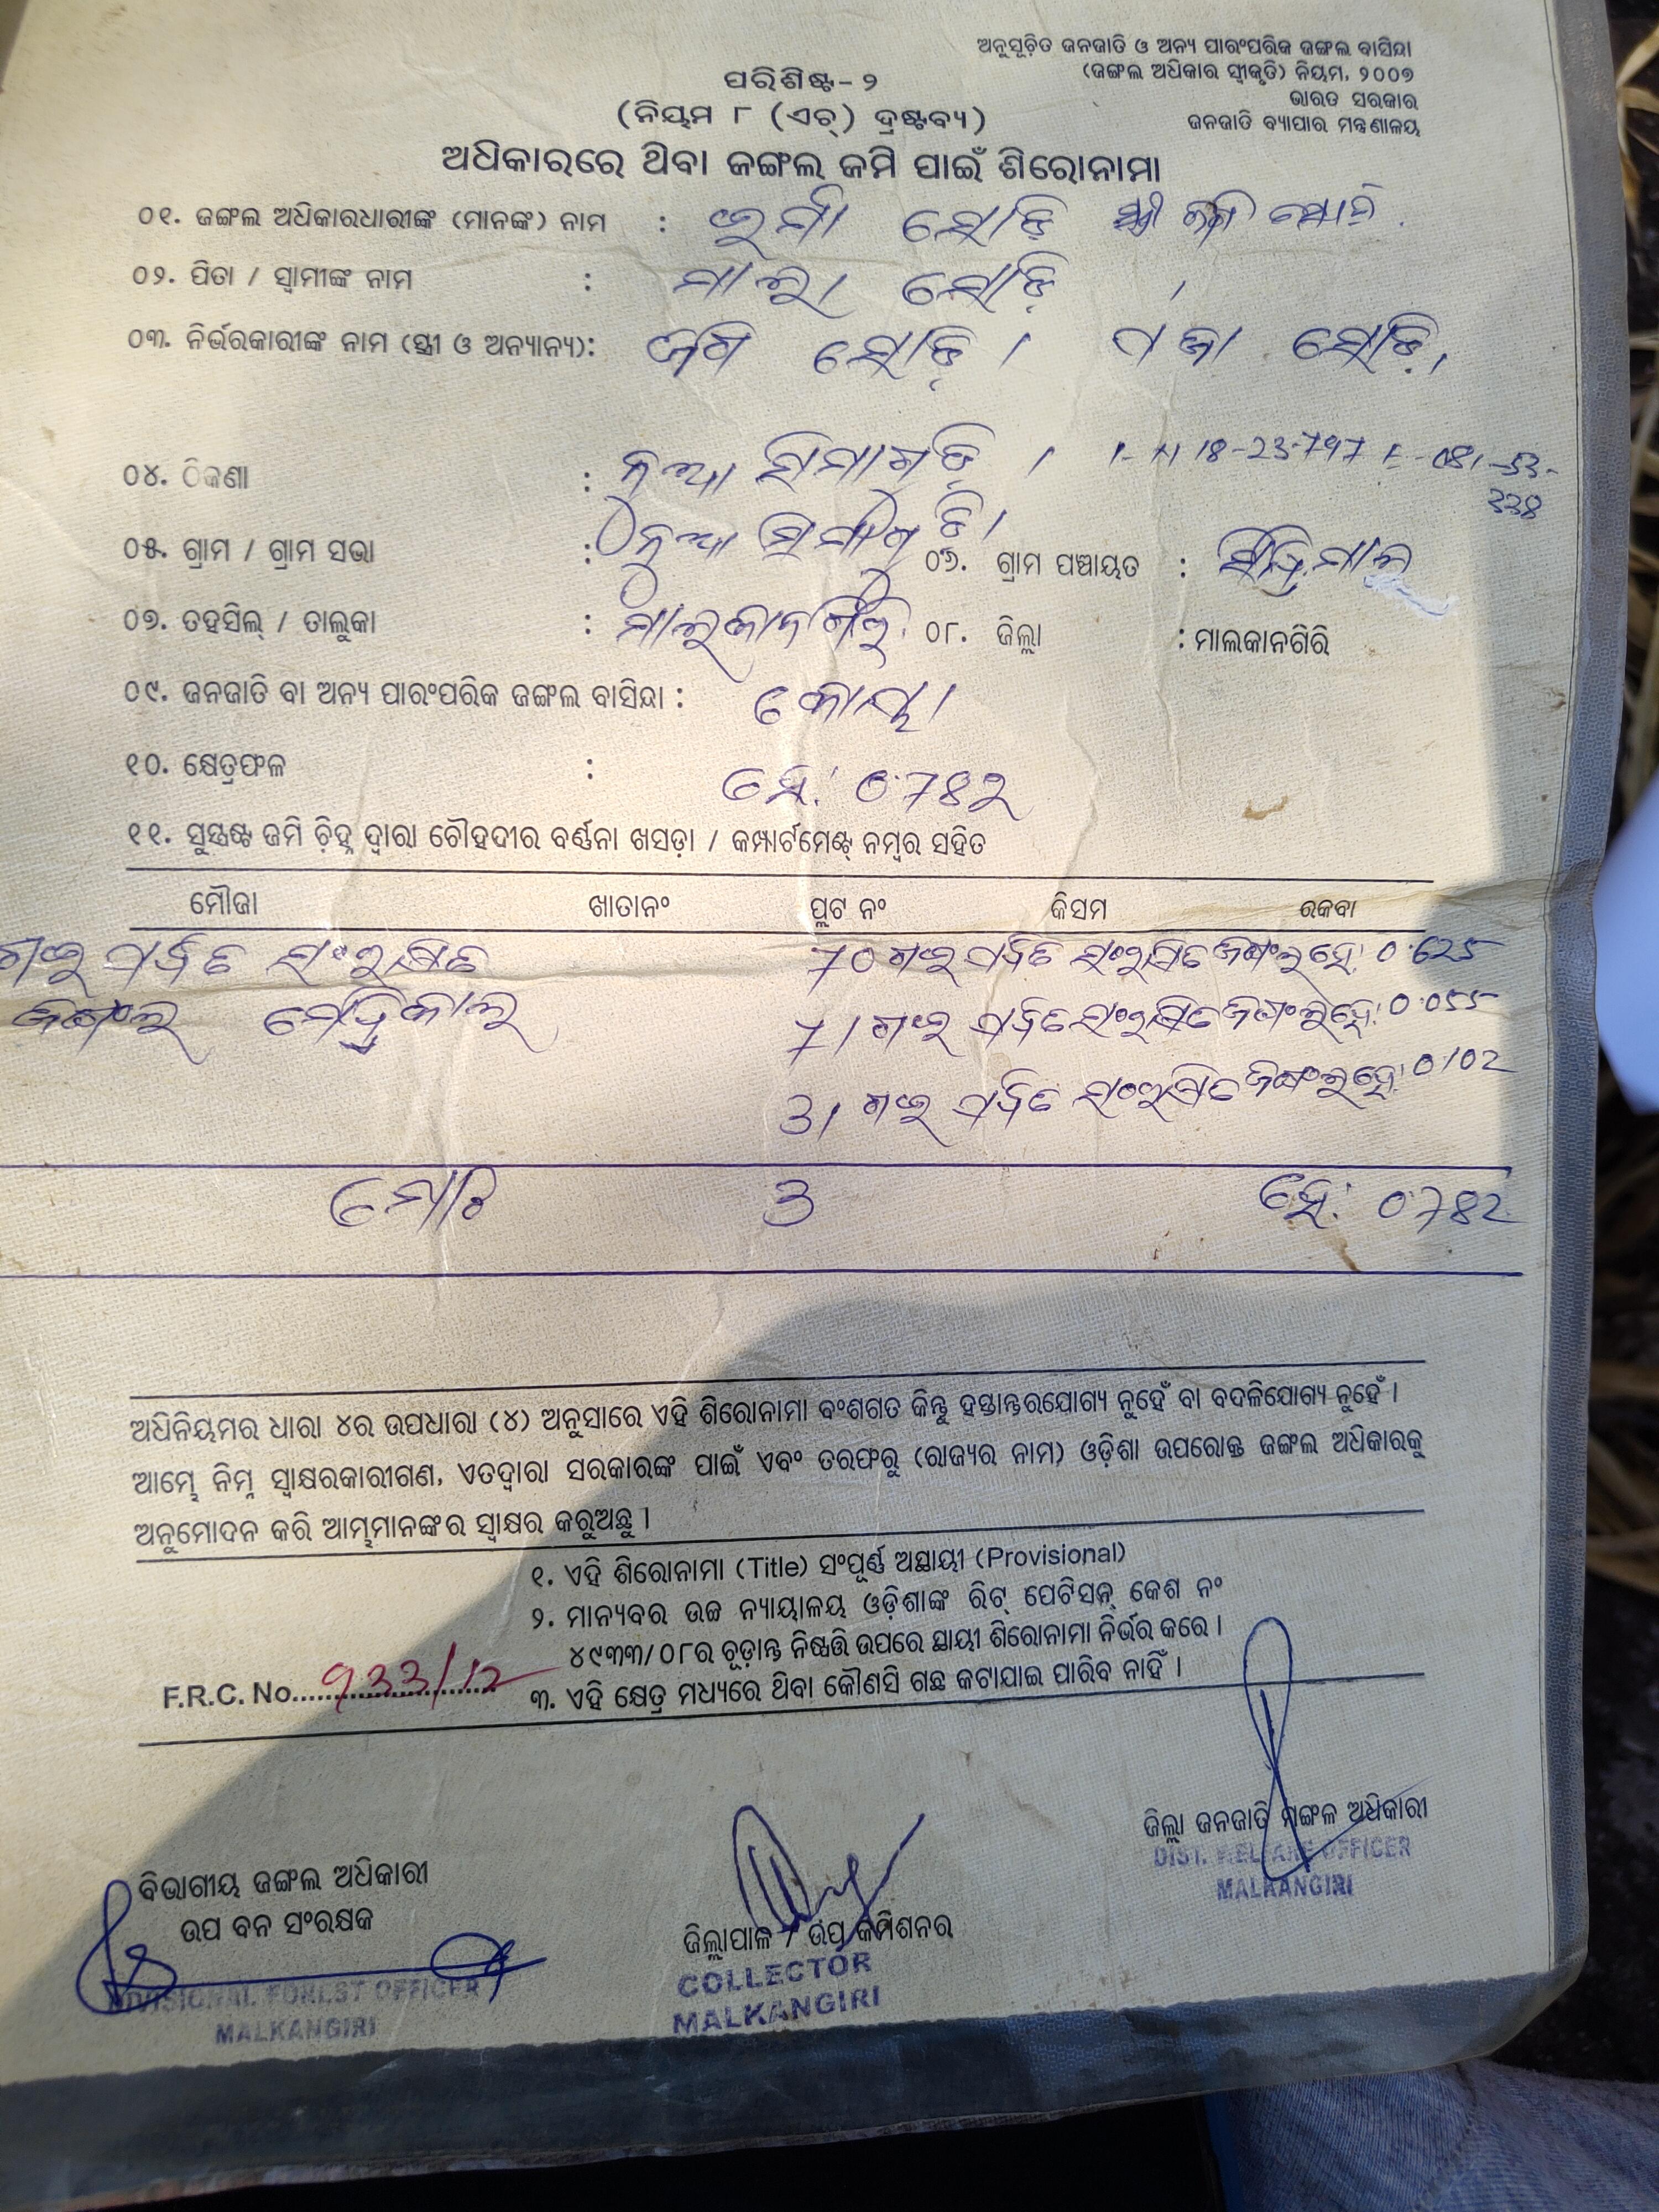 ଅନୁସୂଚିତ ଜନଜାତି ଓ ଅନ୍ୟ ପାରଂପରିକ ଜଙ୍ଗଲ ବାସିନ୍ଦା
(ଜଙ୍ଗଲ ଅଧିକାର ସ୍ୱୀକୃତି) ନିୟମ, ୨୦୦୭
ଭାରତ ସରକାର
ଜନଜାତି ବ୍ୟାପାର ମନ୍ତ୍ରଣାଳୟ
ପରିଶିଷ୍ଟ-୨
(ନିୟମ ୮ (ଏଚ୍) ଦ୍ରଷ୍ଟବ୍ୟ)
ଅଧିକାରରେ ଥିବା ଜଙ୍ଗଲ ଜମି ପାଇଁ ଶିରୋନାମା
୦୧. ଜଙ୍ଗଲ ଅଧିକାରଧାରୀଙ୍କ (ମାନଙ୍କ) ନାମ :
୦୨. ପିତା / ସ୍ୱାମୀଙ୍କ ନାମ :
୦୩. ନିର୍ଭରକାରୀଙ୍କ ନାମ (ସ୍ତ୍ରୀ ଓ ଅନ୍ୟାନ୍ୟ):
୦୪. ଠିକଣା : ନୂଆ
୦୫. ଗ୍ରାମ / ଗ୍ରାମ ସଭା : ନୂଆ ୦୬. ଗ୍ରାମ ପଞ୍ଚାୟତ :
୦୭. ତହସିଲ୍ / ତାଲୁକା : ମାଲକାନଗିରି ୦୮. ଜିଲ୍ଲା : ମାଲକାନଗିରି
୦୯. ଜନଜାତି ବା ଅନ୍ୟ ପାରଂପରିକ ଜଙ୍ଗଲ ବାସିନ୍ଦା : କୋୟା
୧୦. କ୍ଷେତ୍ରଫଳ : ହେ: 0.782
୧୧. ସୁସ୍ପଷ୍ଟ ଜମି ଚିହ୍ନ ଦ୍ୱାରା ଚୌହଦୀର ବର୍ଣ୍ଣନା ଖସଡ଼ା / କମ୍ପାର୍ଟମେଣ୍ଟ୍ ନମ୍ବର ସହିତ
ମୌଜା ଖାତାନଂ ପ୍ଲଟ ନଂ କିସମ ରକବା
ସଂରକ୍ଷିତ 70 ସଂରକ୍ଷିତ ଜଙ୍ଗଲ ହେ: 0.625
ଜଙ୍ଗଲ 71 ସଂରକ୍ଷିତ ଜଙ୍ଗଲ ହେ: 0.055
31 ସଂରକ୍ଷିତ ଜଙ୍ଗଲ ହେ: 0.102
ମୋଟ 3 ହେ: 0.782
ଅଧିନିୟମର ଧାରା ୪ର ଉପଧାରା (୪) ଅନୁସାରେ ଏହି ଶିରୋନାମା ବଂଶଗତ କିନ୍ତୁ ହସ୍ତାନ୍ତରଯୋଗ୍ୟ ନୁହେଁ ବା ବଦଳିଯୋଗ୍ୟ ନୁହେଁ ।
ଆମ୍ଭେ ନିମ୍ନ ସ୍ୱାକ୍ଷରକାରୀଗଣ, ଏତଦ୍ୱାରା ସରକାରଙ୍କ ପାଇଁ ଏବଂ ତରଫରୁ (ରାଜ୍ୟର ନାମ) ଓଡ଼ିଶା ଉପରୋକ୍ତ ଜଙ୍ଗଲ ଅଧିକାରକୁ
ଅନୁମୋଦନ କରି ଆମ୍ଭମାନଙ୍କର ସ୍ୱାକ୍ଷର କରୁଅଛୁ ।
୧. ଏହି ଶିରୋନାମା (Title) ସଂପୂର୍ଣ୍ଣ ଅସ୍ଥାୟୀ (Provisional)
୨. ମାନ୍ୟବର ଉଚ୍ଚ ନ୍ୟାୟାଳୟ ଓଡ଼ିଶାଙ୍କ ରିଟ୍ ପେଟିସନ୍ କେଶ ନଂ
୪୯୩୩/୦୮ର ଚୂଡ଼ାନ୍ତ ନିଷ୍ପତ୍ତି ଉପରେ ସ୍ଥାୟୀ ଶିରୋନାମା ନିର୍ଭର କରେ ।
F.R.C. No. 933/12
୩. ଏହି କ୍ଷେତ୍ର ମଧ୍ୟରେ ଥିବା କୌଣସି ଗଛ କଟାଯାଇ ପାରିବ ନାହିଁ ।
ଜିଲ୍ଲା ଜନଜାତି ମଙ୍ଗଳ ଅଧିକାରୀ
DIST. WELFARE OFFICER
MALKANGIRI
ବିଭାଗୀୟ ଜଙ୍ଗଲ ଅଧିକାରୀ
ଉପ ବନ ସଂରକ୍ଷକ
DIVISIONAL FOREST OFFICER
MALKANGIRI
ଜିଲ୍ଲାପାଳ / ଉପ କମିଶନର
COLLECTOR
MALKANGIRI